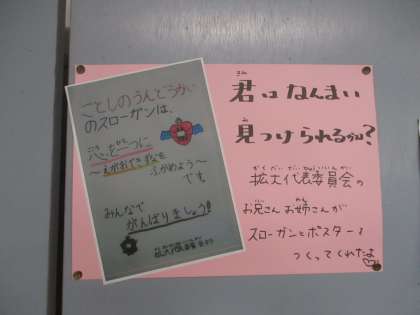 ことしのうんどうかい
のスローガンは、
心を一つに
～えがおときずなを
ふかめよう～
です
みんなで
がんばりましょう!!
君はなんまい
見つけられるかな?
拡大代表委員会の
お兄さんお姉さんが
スローガンとポスターを
つくってくれたよ